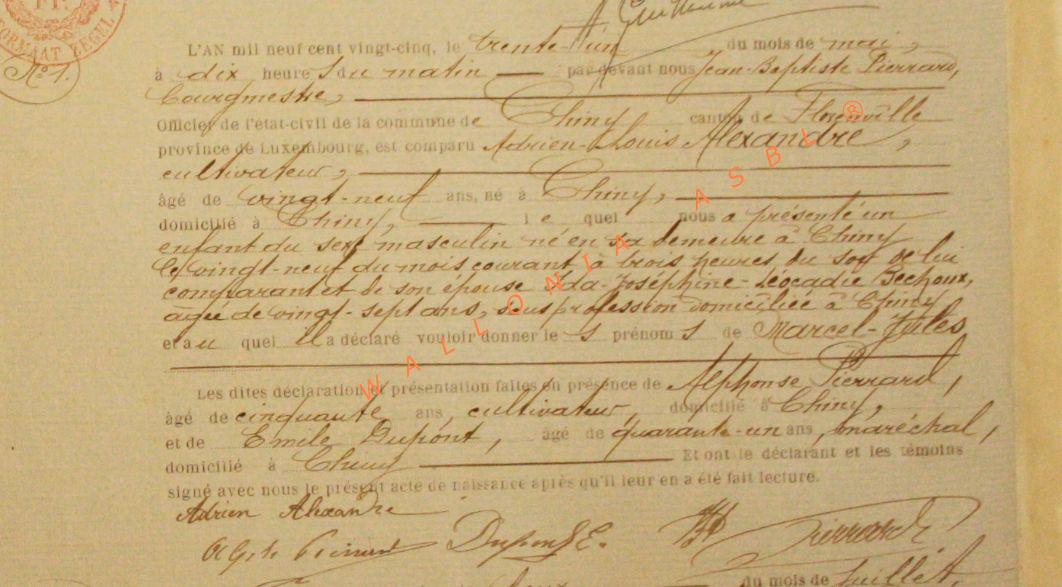 L'AN mil neuf cent vingt-cinq, le trente-un du mois de mai,
N° 1.
à dix heures du matin par devant nous Jean-Baptiste Pierrard,
Bourgmestre,
Officier de l'état-civil de la commune de Chiny canton de Florenville
province de Luxembourg, est comparu Adrien-Louis Alexandre,
cultivateur,
âgé de vingt-neuf ans, né à Chiny,
domicilié à Chiny, le quel nous a présenté un
enfant du sexe masculin né en sa demeure à Chiny
le vingt-neuf du mois courant à trois heures du soir de lui
comparant et de son épouse Ida-Joséphine-Léocadie Bechoux,
agée de vingt-sept ans, sans profession domiciliée à Chiny
et au quel il a déclaré vouloir donner les prénoms de Marcel-Jules
Les dites déclaration et présentation faites en présence de Alphonse Pierrard,
âgé de cinquante ans, cultivateur, domicilié à Chiny,
et de Emile Dupont, âgé de quarante-un ans, maréchal,
domicilié à Chiny Et ont le déclarant et les témoins
signé avec nous le présent acte de naissance après qu'il leur en a été fait lecture.
Adrien Alexandre
Dupont E. Pierrard
du mois de juillet
WALLONIA ASBL ®